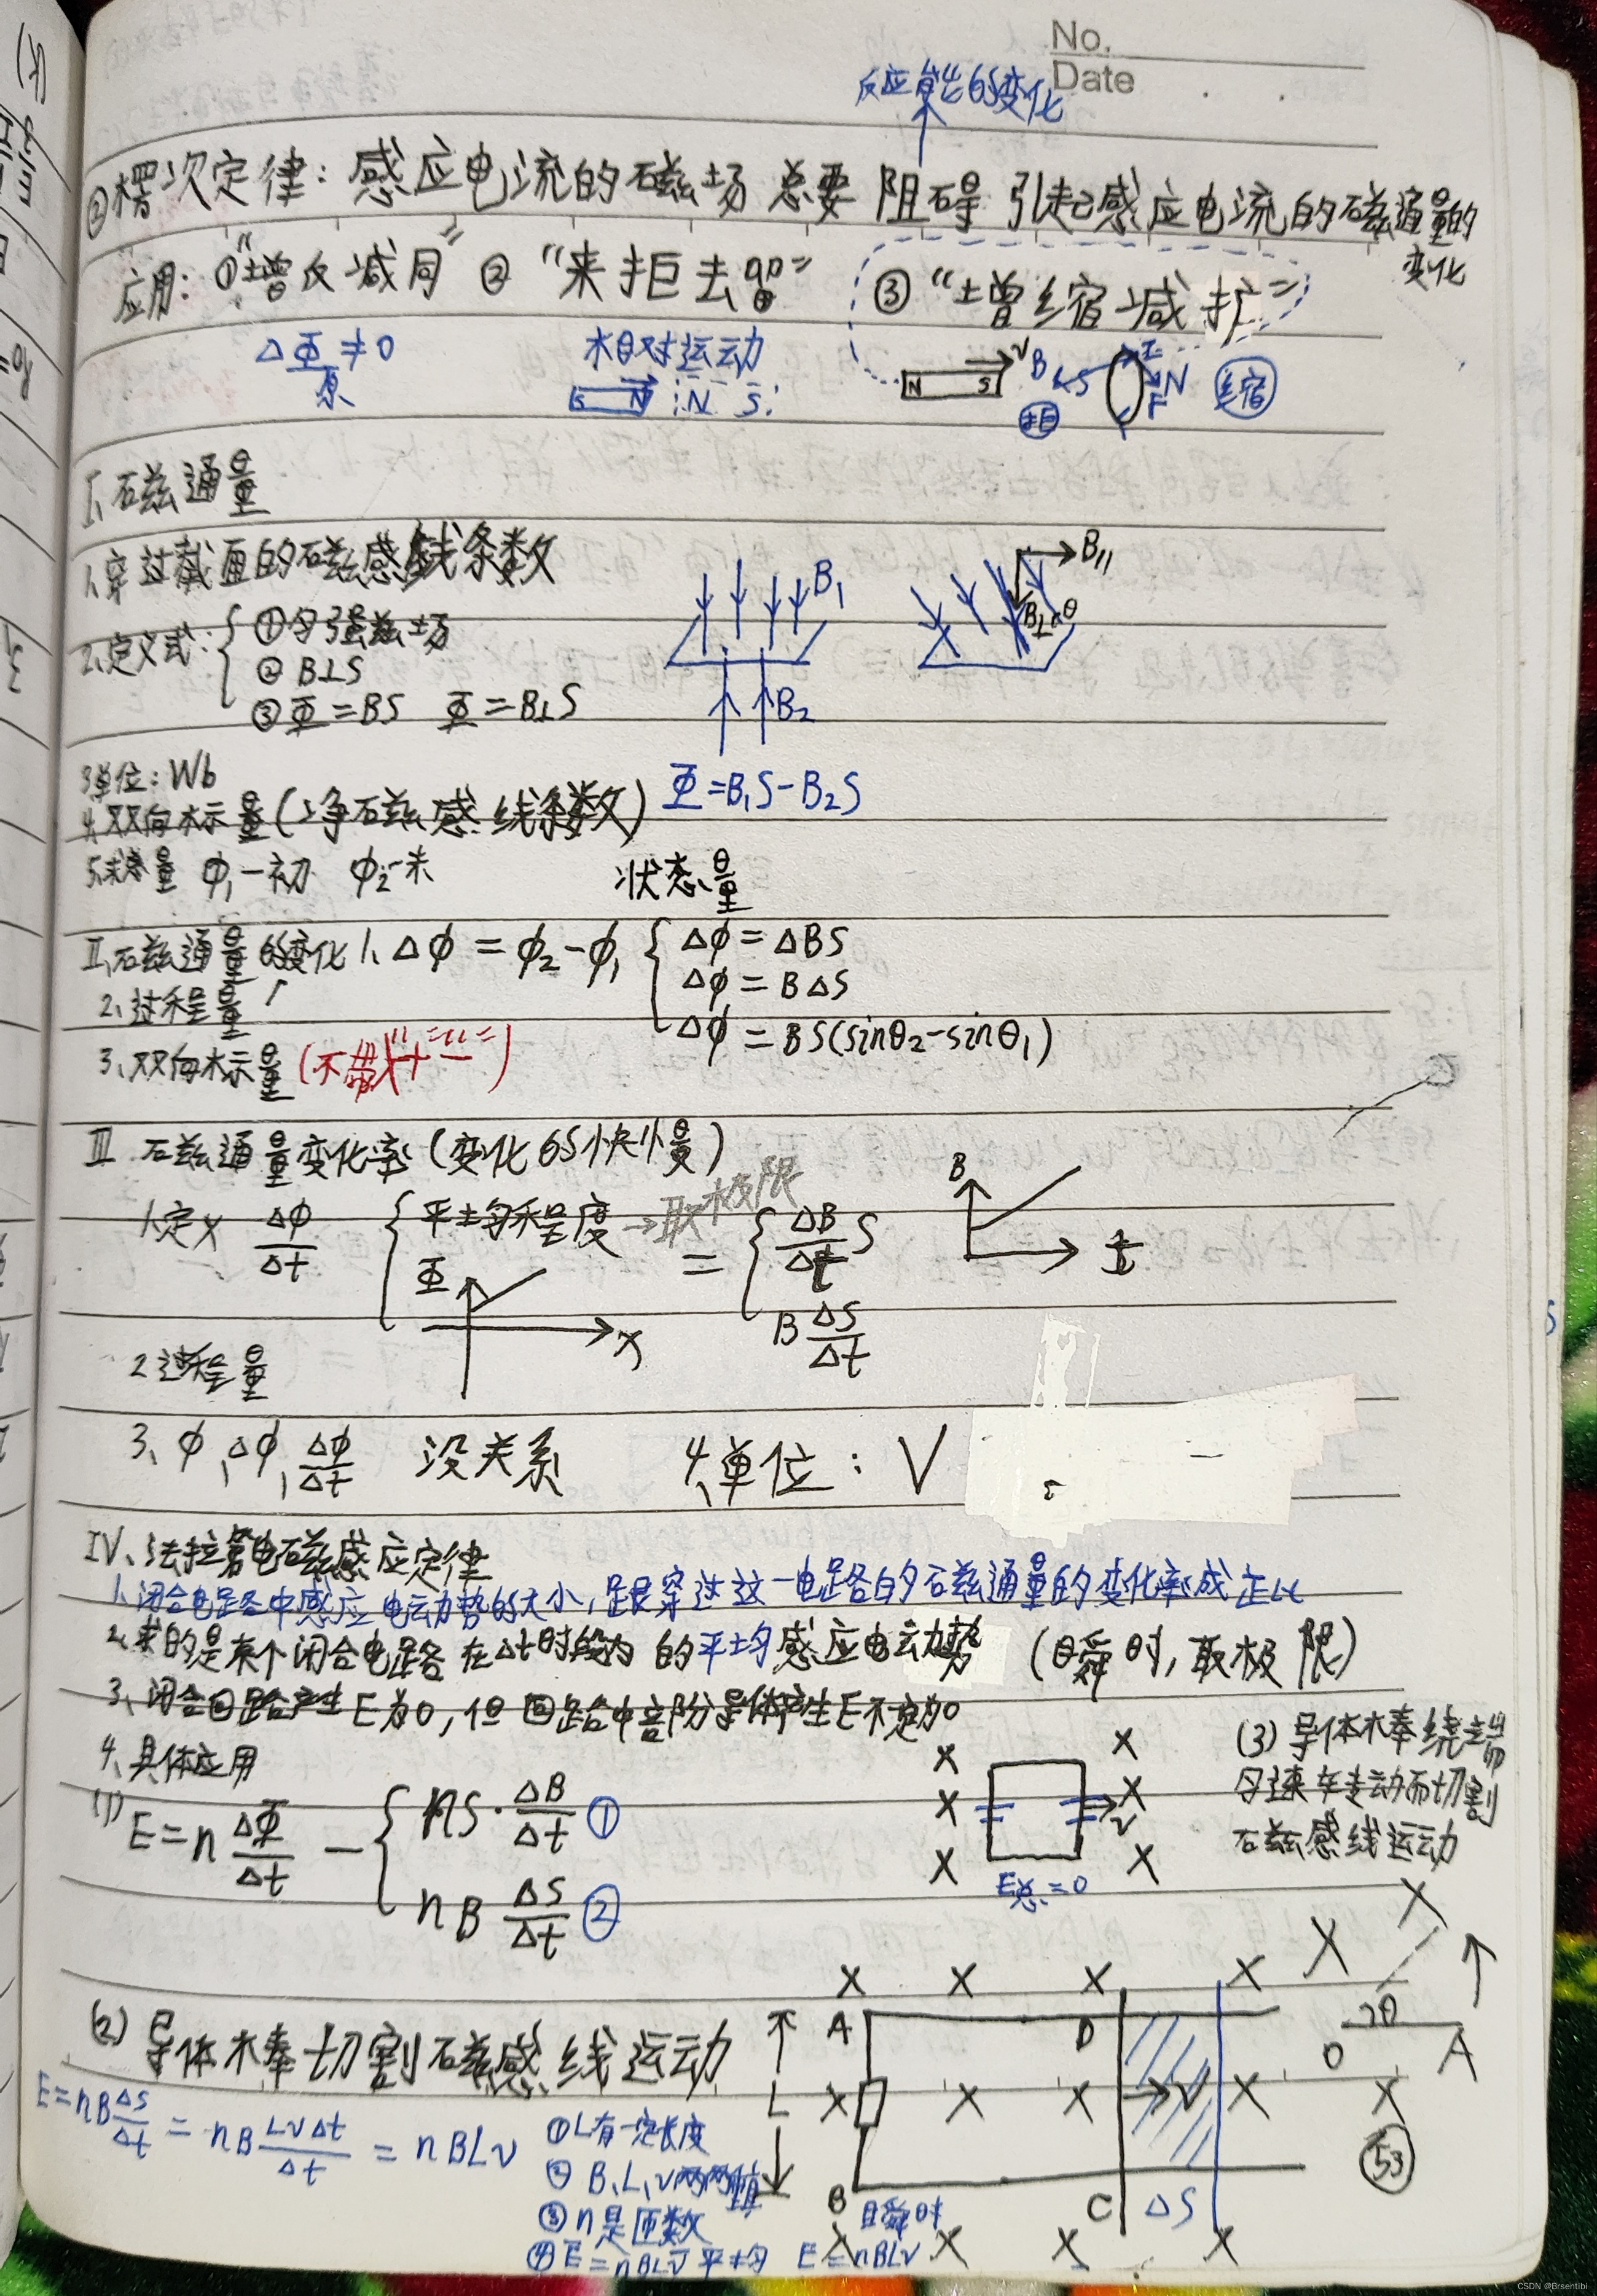 No.
Date
反应能的变化
②楞次定律：感应电流的磁场 总要 阻碍 引起感应电流的磁通量的
变化
应用：①“增反减同” ②“来拒去留” ③“增缩减扩”
ΔΦ≠0
原
相对运动
S N N S
N S v B S I N F 缩
I、磁通量
1、穿过截面的磁感线条数
2、定义式：①匀强磁场
②B⊥S
③Φ=BS Φ=B⊥S
B₁ B₂
B∥ B⊥ θ
3单位：Wb
Φ=B₁S-B₂S
4、双向标量(净磁感线条数)
5、状态量 φ₁-初 φ₂-末 状态量
II、磁通量的变化 1、Δφ=φ₂-φ₁ { Δφ=ΔBS
Δφ=BΔS
Δφ=BS(sinθ₂-sinθ₁)
2、过程量
3、双向标量(不带“+”“-”)
III 磁通量变化率(变化的快慢)
1、定义 Δφ/Δt { 平均程度→取极限 = { ΔB/Δt S
BΔS/Δt
Φ x
B t
2过程量
3、φ、Δφ、Δφ/Δt 没关系 4、单位：V
IV、法拉第电磁感应定律
1、闭合电路中感应电动势的大小，跟穿过这一电路的磁通量的变化率成正比
2、求的是某个闭合电路在Δt时段内的平均感应电动势 (瞬时，取极限)
3、闭合回路产生E为0，但回路中部分导体产生E不定为0
4、具体应用
(1) E=nΔΦ/Δt - { nS·ΔB/Δt ①
nBΔS/Δt ②
× × × × × × v
E总=0
(3)导体棒绕端
匀速转动而切割
磁感线运动
× × θ O A
(2)导体棒切割磁感线运动
E=nBΔS/Δt=nBLvΔt/Δt=nBLv
①L有一定长度
②B、L、v两两垂直
③n是匝数
④E̅=nBLv̅平均 瞬时 E=nBLv
× × × ×
A D
L × × × v × ×
B C ΔS
× × × ×
53
CSDN @Brsentibi